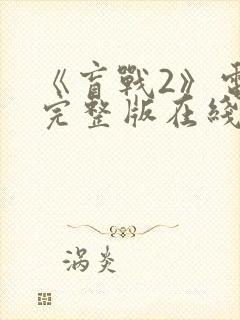 《盲戰2》電
完整版在綫
涡炎